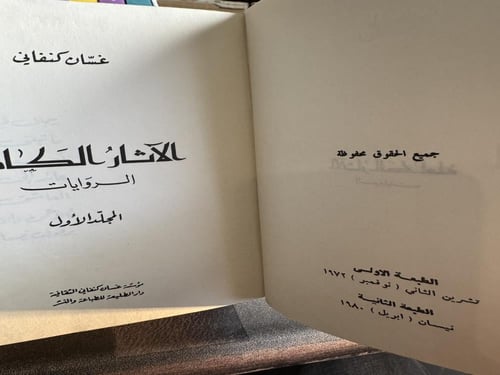 غسّان كنفاني
الآثار
الروايات
المجلد الأول
مؤسسة غسان كنفاني الثقافية
دار الطليعة للطباعة والنشر
جميع الحقوق محفوظة
الطبعة الاولى
تشرين الثاني ( نوفمبر ) ١٩٧٢
الطبعة الثانية
نيسان ( ابريل ) ١٩٨٠